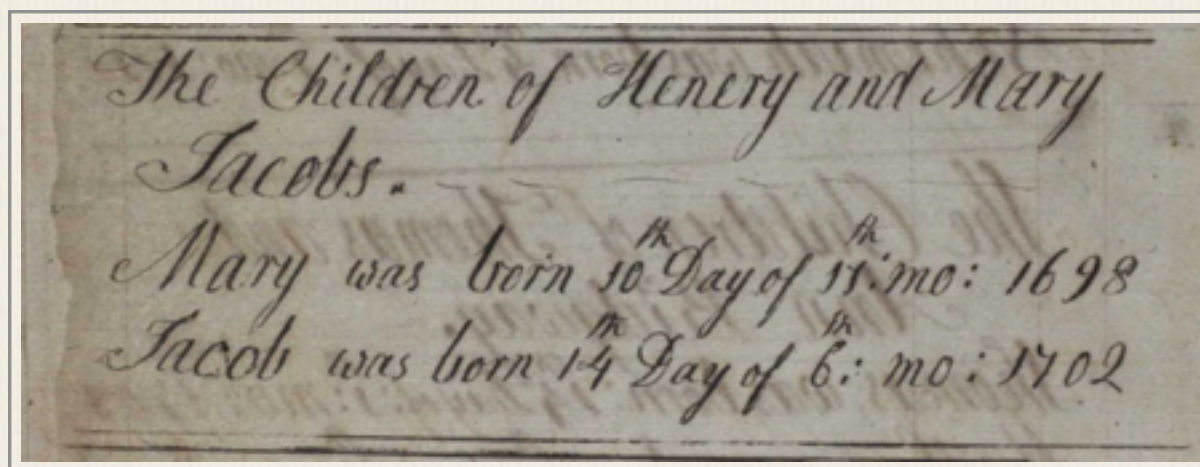 The Children of Henery and Mary
Jacobs.
Mary was born 10th Day of 11th: mo: 1698
Jacob was born 14th Day of 6th: mo: 1702